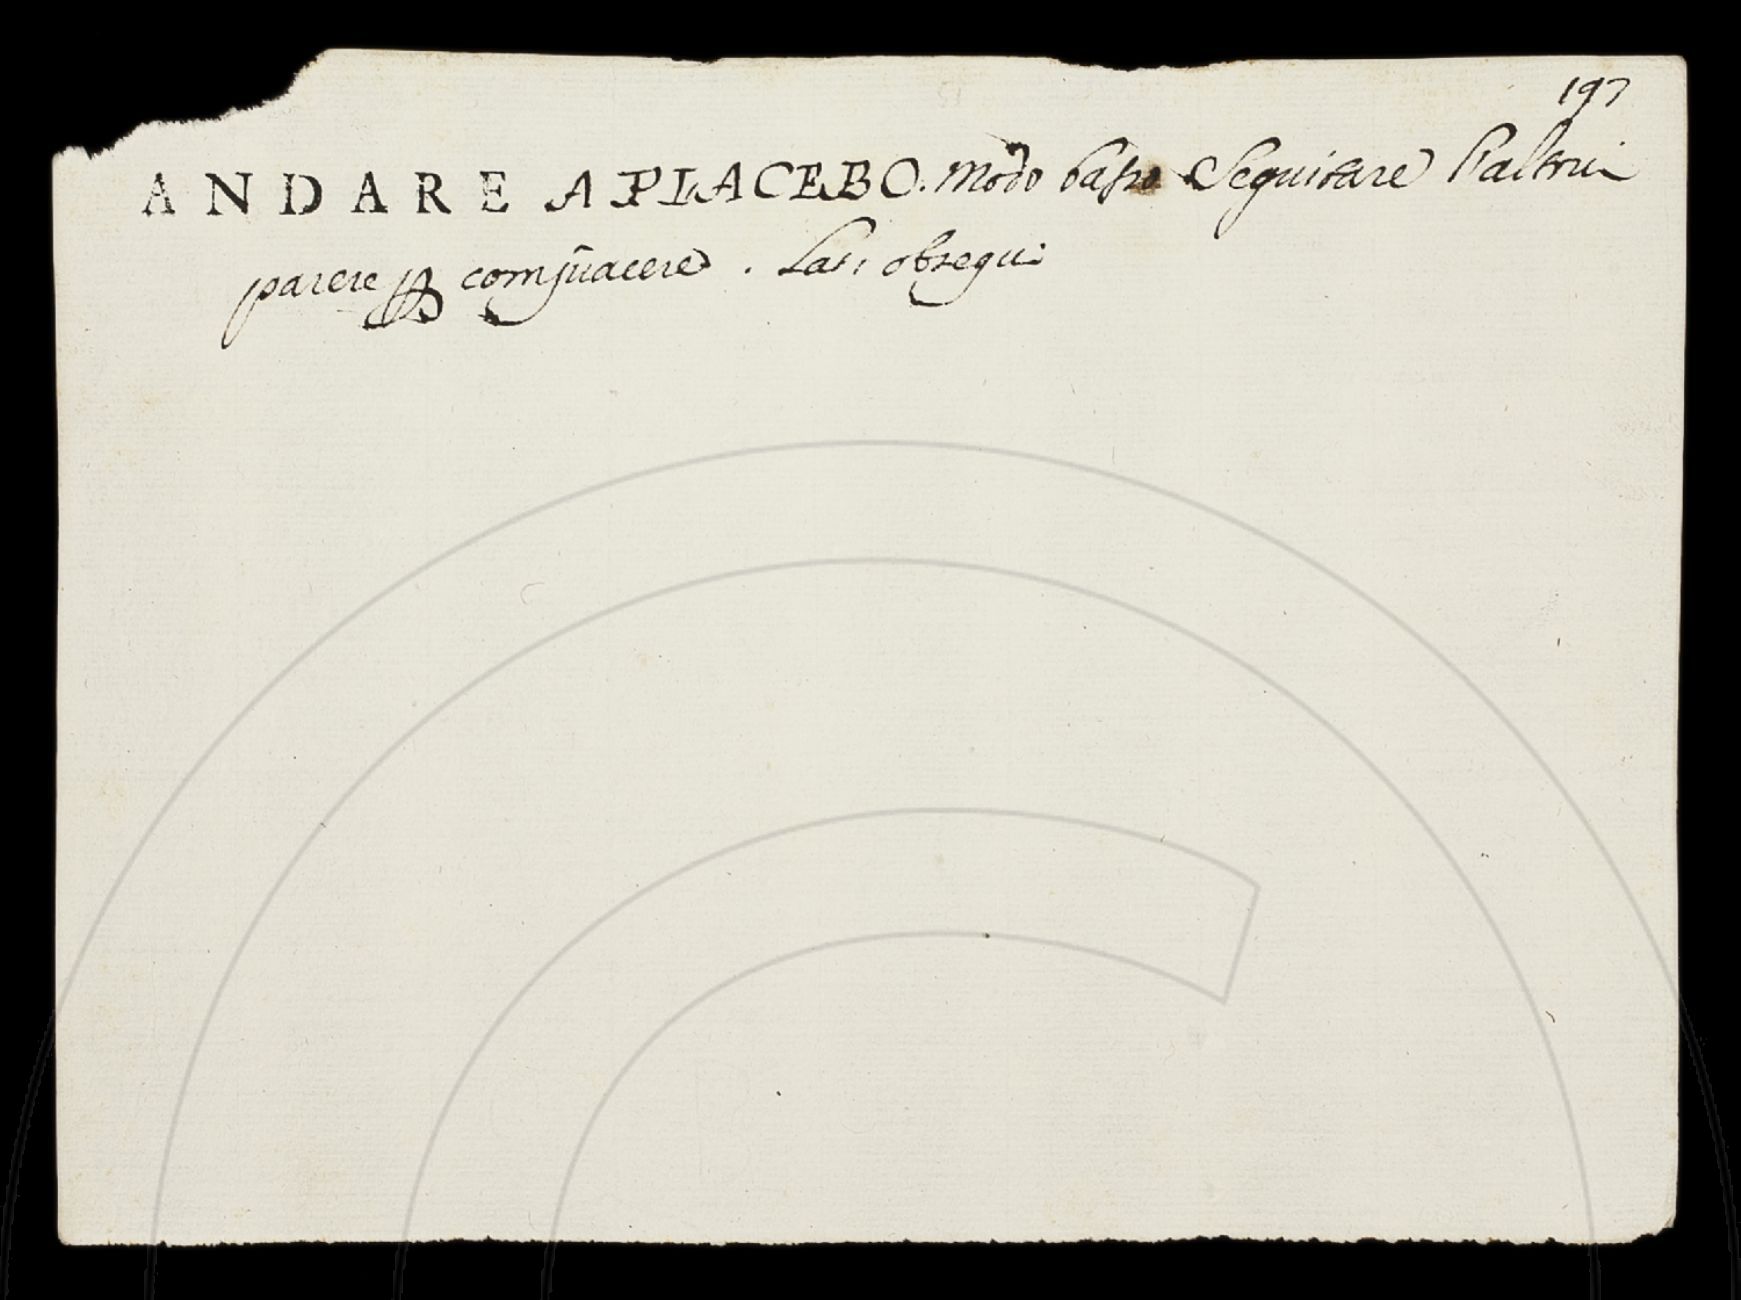 197
ANDARE A PIACEBO. Modo basso Seguitare l'altrui
parere p compiacere. Lat: obsequi